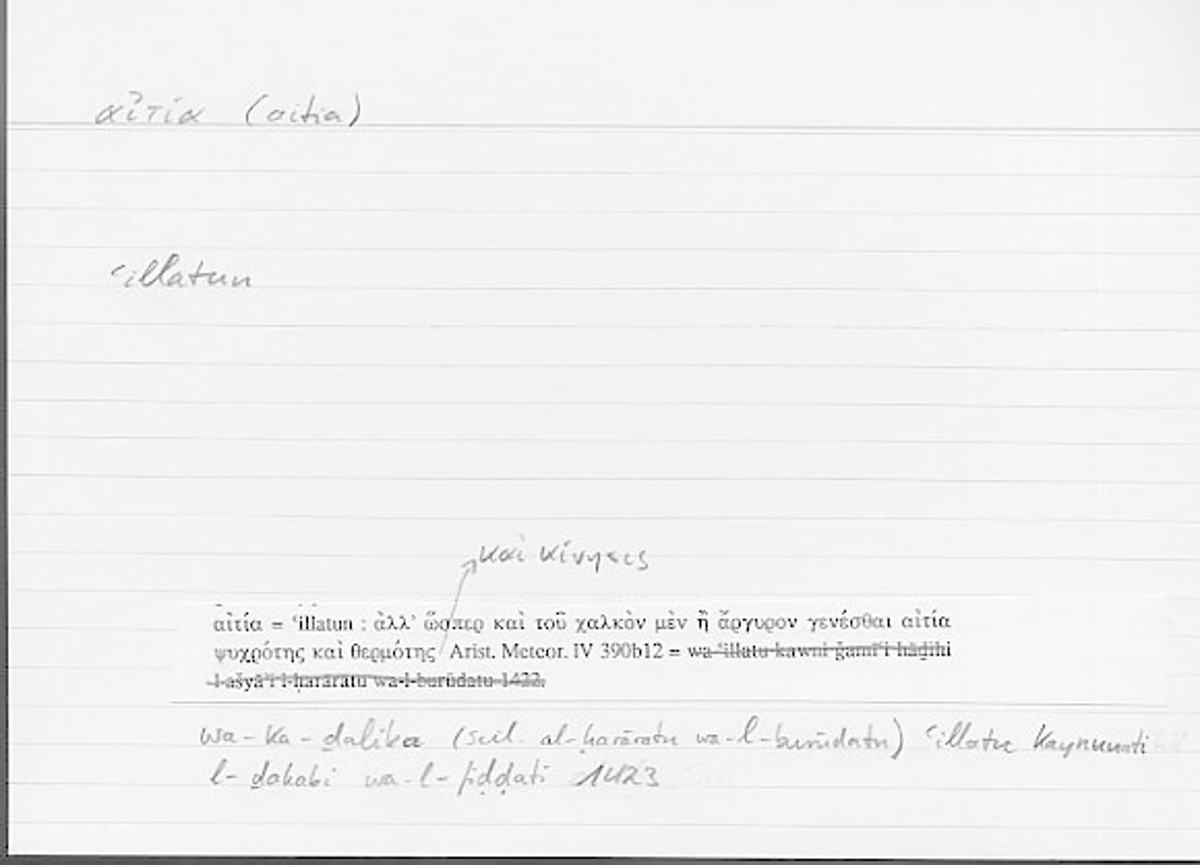 αἰτία (aitia)
ʿillatun
καὶ κίνησις
αἰτία = ʿillatun : ἀλλ’ ὥσπερ καὶ τοῦ χαλκὸν μὲν ἢ ἄργυρον γενέσθαι αἰτία
ψυχρότης καὶ θερμότης Arist. Meteor. IV 390b12 = wa-ʿillatu kawni ǧamīʿi hāḏihi
l-ašyāʾi l-ḥarāratu wa-l-burūdatu 1422.
wa-ka-ḏalika (scil. al-ḥarāratu wa-l-burūdatu) ʿillatu kaynunati
l-ḏahabi wa-l-fiḍḍati 1423